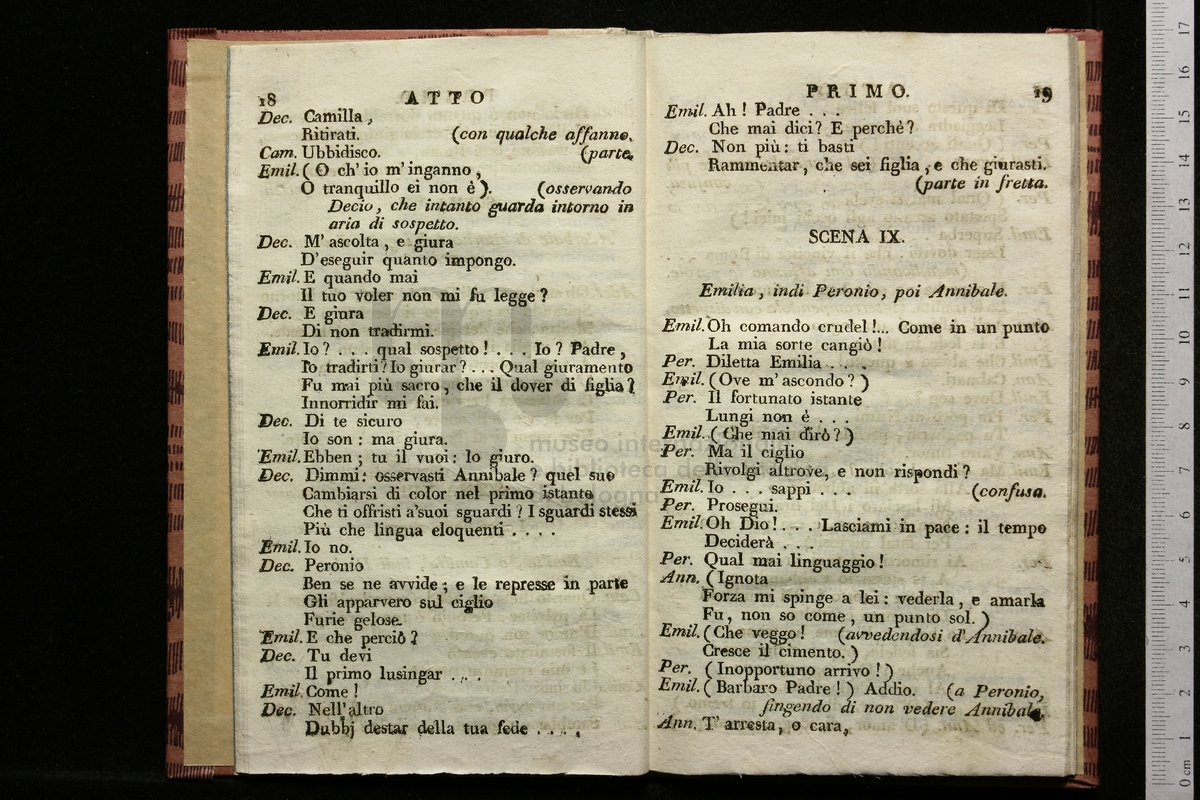 18 ATTO
Dec. Camilla,
Ritirati. (con qualche affanno.
Cam. Ubbidisco. (parte.
Emil. ( O ch' io m' inganno,
O tranquillo ei non è ). (osservando
Decio, che intanto guarda intorno in
aria di sospetto.
Dec. M' ascolta, e giura
D'eseguir quanto impongo.
Emil. E quando mai
Il tuo voler non mi fu legge?
Dec. E giura
Di non tradirmi.
Emil. Io? . . . qual sospetto! . . . Io? Padre,
Io tradirti? Io giurar? . . . Qual giuramento
Fu mai più sacro, che il dover di figlia?
Innorridir mi fai.
Dec. Di te sicuro
Io son: ma giura.
Emil. Ebben; tu il vuoi: Io giuro.
Dec. Dimmi: osservasti Annibale? quel suo
Cambiarsi di color nel primo istante
Che ti offristi a'suoi sguardi? I sguardi stessi
Più che lingua eloquenti . . . .
Emil. Io no.
Dec. Peronio
Ben se ne avvide; e le represse in parte
Gli apparvero sul ciglio
Furie gelose.
Emil. E che perciò?
Dec. Tu devi
Il primo lusingar . . . .
Emil. Come!
Dec. Nell'altro
Dubbj destar della tua fede . . . .
PRIMO. 19
Emil. Ah! Padre . . .
Che mai dici? E perchè?
Dec. Non più: ti basti
Rammentar, che sei figlia, e che giurasti.
(parte in fretta.
SCENA IX.
Emilia, indi Peronio, poi Annibale.
Emil. Oh comando crudel!... Come in un punto
La mia sorte cangiò!
Per. Diletta Emilia . . . .
Emil. (Ove m' ascondo?)
Per. Il fortunato istante
Lungi non è . . .
Emil. (Che mai dirò?)
Per. Ma il ciglio
Rivolgi altrove, e non rispondi?
Emil. Io . . . sappi . . . (confusa.
Per. Prosegui.
Emil. Oh Dio! . . . Lasciami in pace: il tempo
Deciderà . . .
Per. Qual mai linguaggio!
Ann. (Ignota
Forza mi spinge a lei: vederla, e amarla
Fu, non so come, un punto sol.)
Emil. (Che veggo! (avvedendosi d'Annibale.
Cresce il cimento.)
Per. (Inopportuno arrivo!)
Emil. (Barbaro Padre!) Addio. (a Peronio,
fingendo di non vedere Annibale.
Ann. T' arresta, o cara,